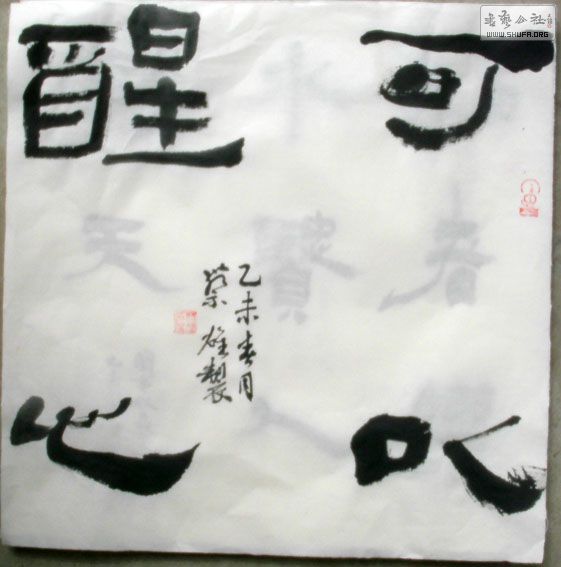 可以
醒心
乙未春月
荣雄製
書藝公社
WWW.SHUFA.ORG